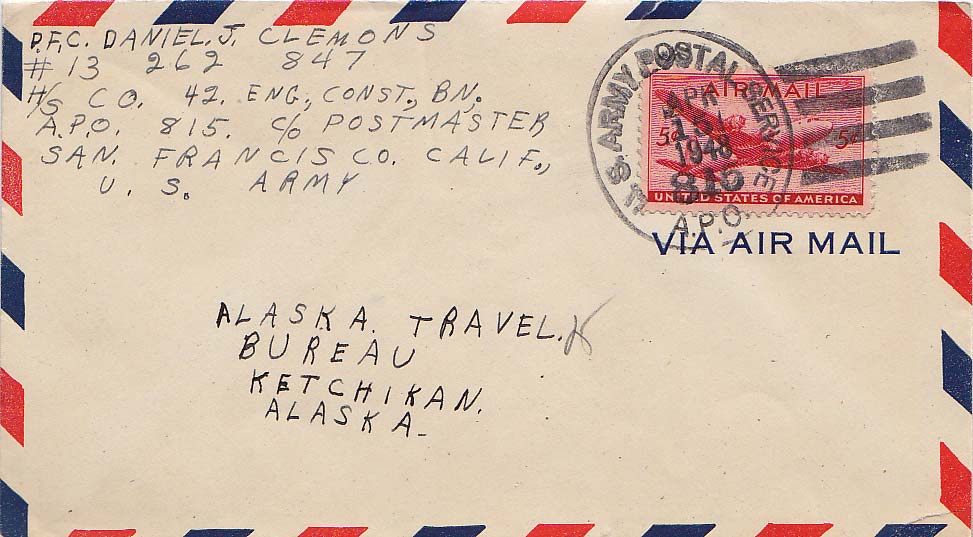 P.F.C. DANIEL. J. CLEMONS
# 13 262 847
H/S CO. 42. ENG., CONST., BN.
A.P.O. 815. C/O POSTMASTER
SAN. FRANCISCO. CALIF.,
U. S. ARMY
U.S. ARMY POSTAL SERVICE
APR
1948
A.P.O.
AIR MAIL
5¢ 5¢
UNITED STATES OF AMERICA
VIA AIR MAIL
ALASKA. TRAVEL.
BUREAU
KETCHIKAN.
ALASKA-